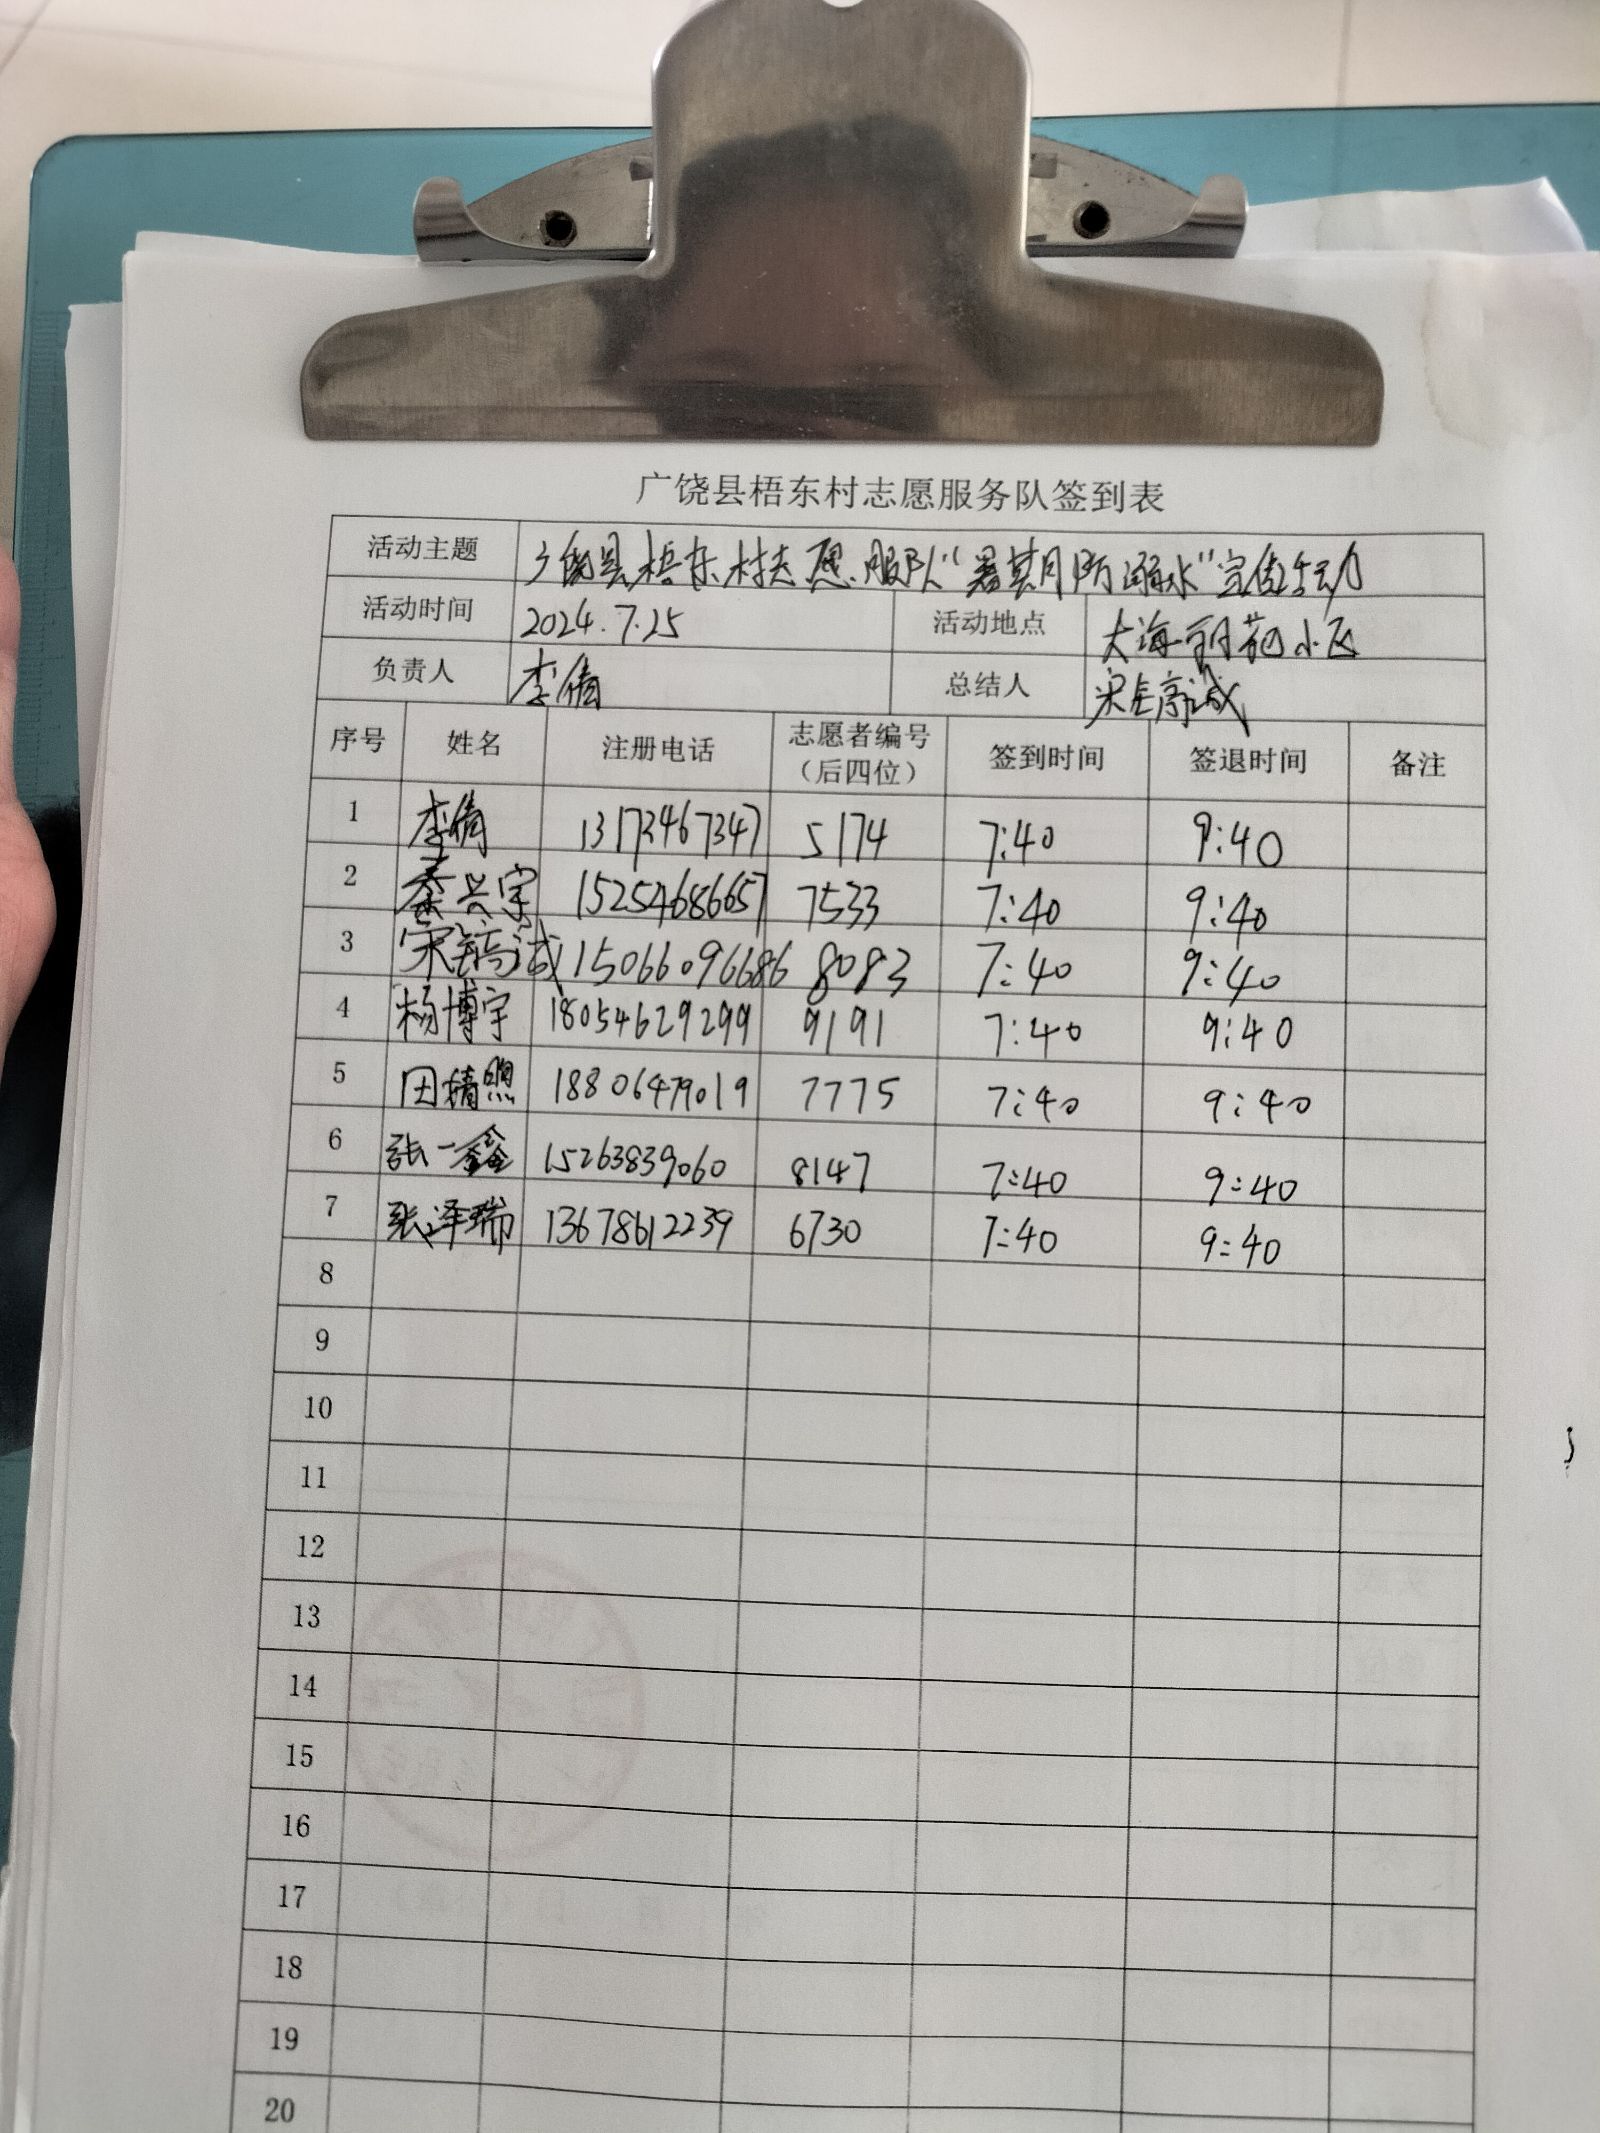 广饶县梧东村志愿服务队签到表
活动主题 广饶县梧东村志愿服队“暑期防溺水”宣传活动
活动时间 2024.7.25 活动地点 大海丽花园小区
负责人 李倩 总结人 宋镐诚
序号 姓名 注册电话 志愿者编号（后四位） 签到时间 签退时间 备注
1 李倩 13173467347 5174 7:40 9:40
2 秦兴宇 15254686657 7533 7:40 9:40
3 宋镐诚 15066096686 8083 7:40 9:40
4 杨博宇 18054629299 9191 7:40 9:40
5 田精照 18806479019 7775 7:40 9:40
6 张一鑫 15263839060 8147 7:40 9:40
7 张泽瑞 13678612239 6730 7:40 9:40
8
9
10
11
12
13
14
15
16
17
18
19
20